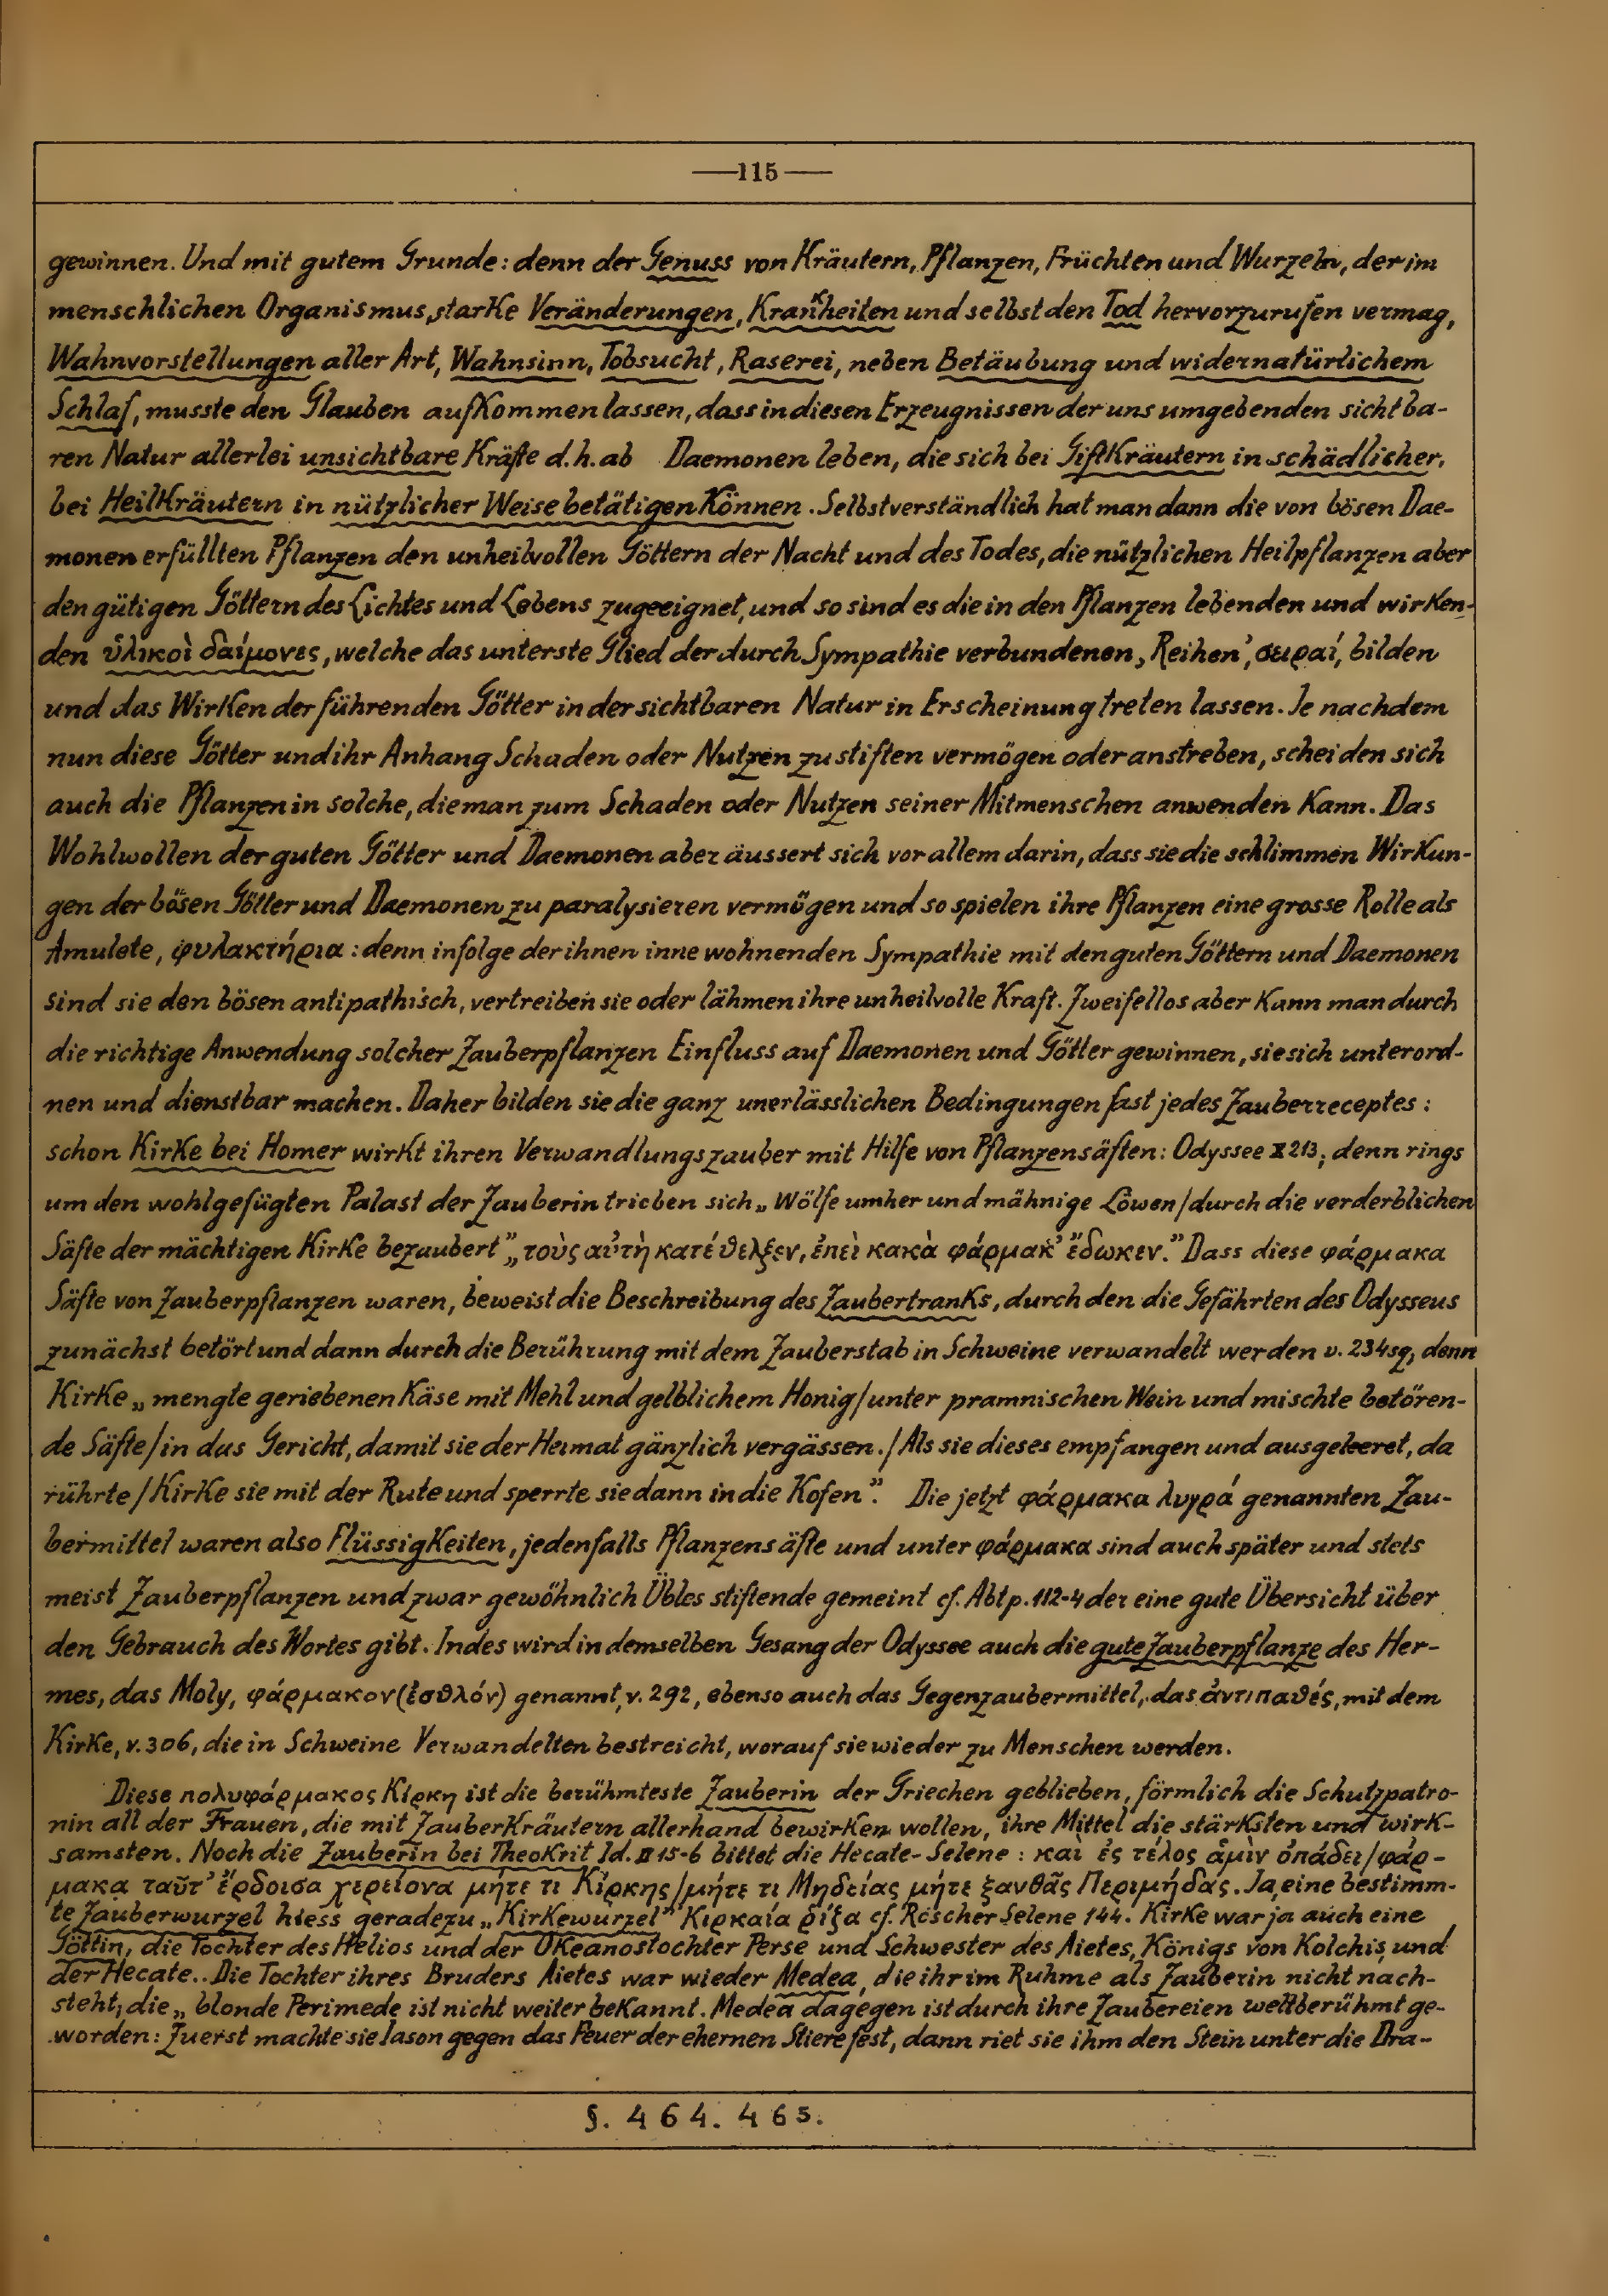 —115—
gewinnen. Und mit gutem Grunde: denn der Genuss von Kräutern, Pflanzen, Früchten und Wurzeln, der im
menschlichen Organismus, starke Veränderungen, Krankheiten und selbst den Tod hervorzurufen vermag,
Wahnvorstellungen aller Art, Wahnsinn, Tobsucht, Raserei, neben Betäubung und widernatürlichem
Schlaf, musste den Glauben aufkommen lassen, dass in diesen Erzeugnissen der uns umgebenden sichtba-
ren Natur allerlei unsichtbare Kräfte d.h. ab Daemonen leben, die sich bei Giftkräutern in schädlicher,
bei Heilkräutern in nützlicher Weise betätigen können. Selbstverständlich hat man dann die von bösen Dae-
monen erfüllten Pflanzen den unheilvollen Göttern der Nacht und des Todes, die nützlichen Heilpflanzen aber
den gütigen Göttern des Lichtes und Lebens zugeeignet, und so sind es die in den Pflanzen lebenden und wirken-
den ὑλικοὶ δαίμονες, welche das unterste Glied der durch Sympathie verbundenen ‚Reihen’, σειραί, bilden
und das Wirken der führenden Götter in der sichtbaren Natur in Erscheinung treten lassen. Je nachdem
nun diese Götter und ihr Anhang Schaden oder Nutzen zu stiften vermögen oder anstreben, scheiden sich
auch die Pflanzen in solche, die man zum Schaden oder Nutzen seiner Mitmenschen anwenden kann. Das
Wohlwollen der guten Götter und Daemonen aber äussert sich vor allem darin, dass sie die schlimmen Wirkun-
gen der bösen Götter und Daemonen zu paralysieren vermögen und so spielen ihre Pflanzen eine grosse Rolle als
Amulete, φυλακτήρια: denn infolge der ihnen inne wohnenden Sympathie mit den guten Göttern und Daemonen
sind sie den bösen antipathisch, vertreiben sie oder lähmen ihre unheilvolle Kraft. Zweifellos aber kann man durch
die richtige Anwendung solcher Zauberpflanzen Einfluss auf Daemonen und Götter gewinnen, sie sich unterord-
nen und dienstbar machen. Daher bilden sie die ganz unerlässlichen Bedingungen fast jedes Zauberreceptes:
schon Kirke bei Homer wirkt ihren Verwandlungszauber mit Hilfe von Pflanzensäften: Odyssee X 213; denn rings
um den wohlgefügten Palast der Zauberin trieben sich „Wölfe umher und mähnige Löwen / durch die verderblichen
Säfte der mächtigen Kirke bezaubert” „τοὺς αὐτὴ κατέθελξεν, ἐπεὶ κακὰ φάρμακ’ ἔδωκεν.” Dass diese φάρμακα
Säfte von Zauberpflanzen waren, beweist die Beschreibung des Zaubertranks, durch den die Gefährten des Odysseus
zunächst betört und dann durch die Berührung mit dem Zauberstab in Schweine verwandelt werden v. 234 sq, denn
Kirke „mengte geriebenen Käse mit Mehl und gelblichem Honig / unter pramnischen Wein und mischte betören-
de Säfte / in das Gericht, damit sie der Heimat gänzlich vergässen. / Als sie dieses empfangen und ausgeleeret, da
rührte / Kirke sie mit der Rute und sperrte sie dann in die Kofen”. Die jetzt φάρμακα λυγρά genannten Zau-
bermittel waren also Flüssigkeiten, jedenfalls Pflanzensäfte und unter φάρμακα sind auch später und stets
meist Zauberpflanzen und zwar gewöhnlich Übles stiftende gemeint cf. Abt p. 112-4 der eine gute Übersicht über
den Gebrauch des Wortes gibt. Indes wird in demselben Gesang der Odyssee auch die gute Zauberpflanze des Her-
mes, das Moly, φάρμακον (ἐσθλόν) genannt, v. 292, ebenso auch das Gegenzaubermittel, das ἀντιπαθές, mit dem
Kirke, v. 306, die in Schweine Verwandelten bestreicht, worauf sie wieder zu Menschen werden.
Diese πολυφάρμακος Κίρκη ist die berühmteste Zauberin der Griechen geblieben, förmlich die Schutzpatro-
nin all der Frauen, die mit Zauberkräutern allerhand bewirken wollen, ihre Mittel die stärksten und wirk-
samsten. Noch die Zauberin bei Theokrit Id. II 15-6 bittet die Hecate-Selene: καὶ ἐς τέλος ἄμιν ὀπάδει / φάρ-
μακα ταῦτ’ ἔρδοισα χερείονα μήτε τι Κίρκης / μήτε τι Μηδείας μήτε ξανθᾶς Περιμήδας. Ja, eine bestimm-
te Zauberwurzel hiess geradezu „Kirkewurzel” Κιρκαία ῥίζα cf. Roscher Selene 144. Kirke war ja auch eine
Göttin, die Tochter des Helios und der Okeanostochter Perse und Schwester des Aietes, Königs von Kolchis, und
der Hecate.. Die Tochter ihres Bruders Aietes war wieder Medea, die ihr im Ruhme als Zauberin nicht nach-
steht; die „blonde Perimede ist nicht weiter bekannt. Medea dagegen ist durch ihre Zaubereien weltberühmt ge-
worden: Zuerst machte sie Iason gegen das Feuer der ehernen Stiere fest, dann riet sie ihm den Stein unter die Dra-
§. 464. 465.